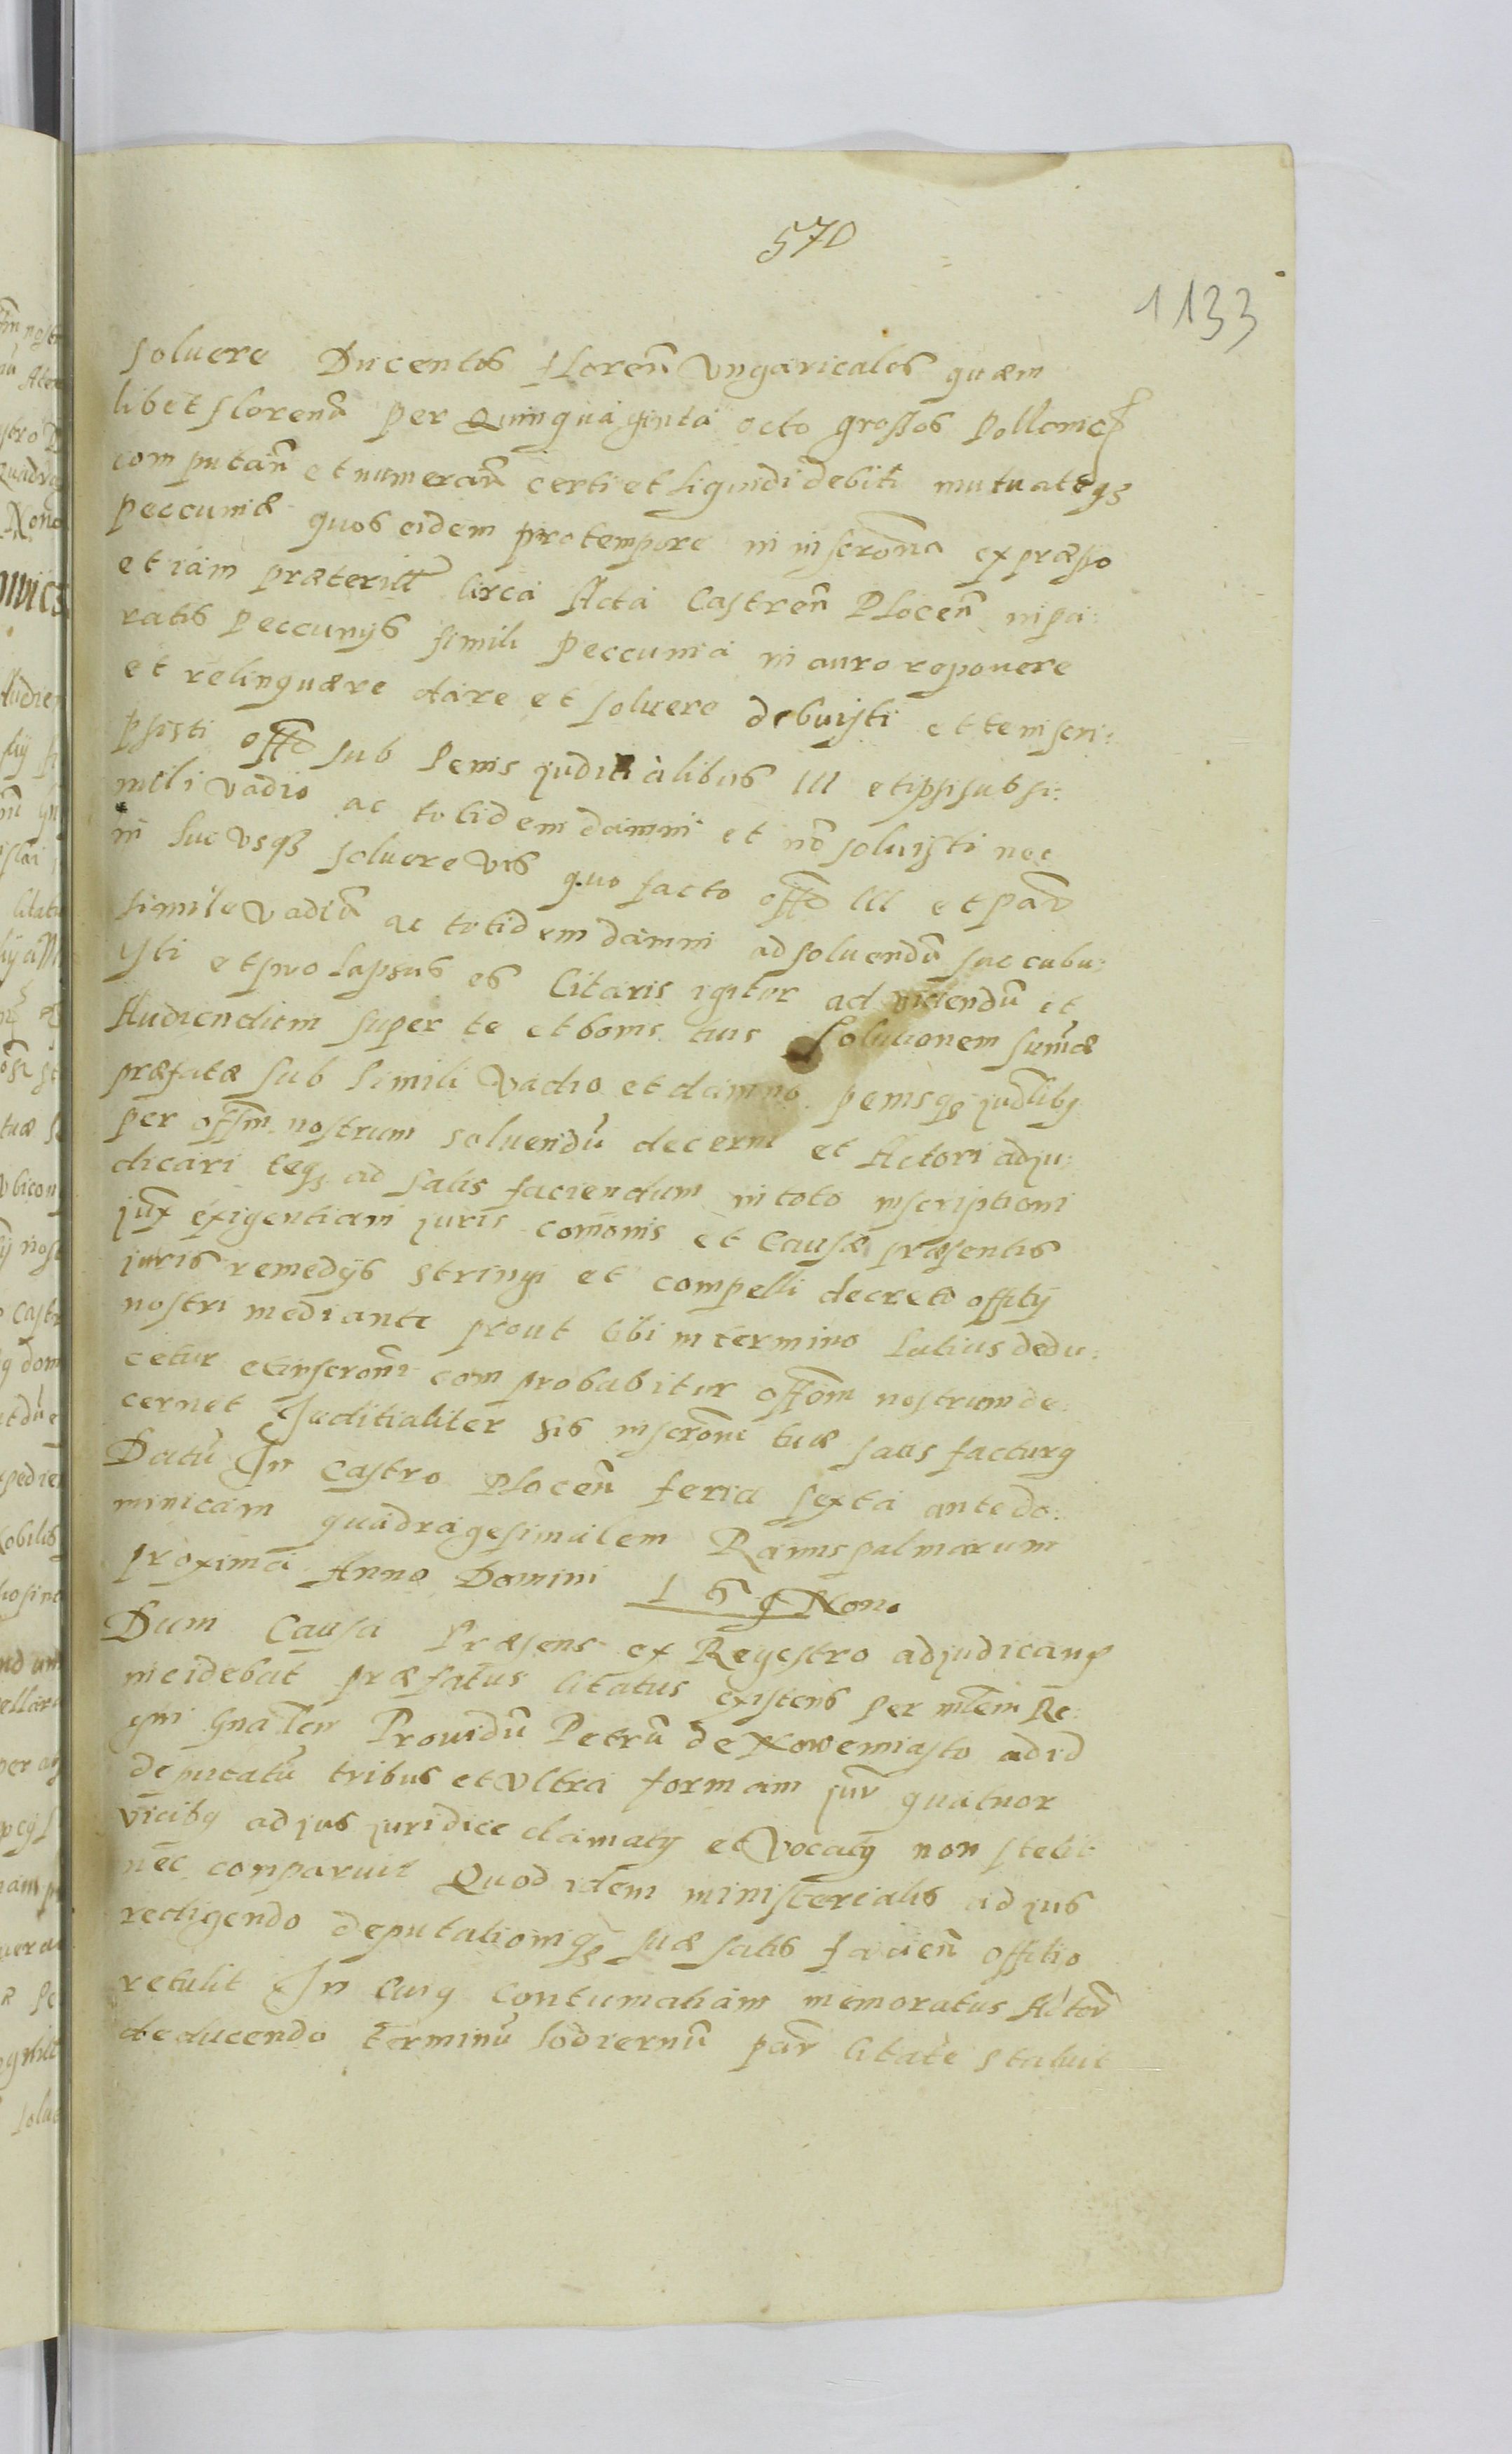 570
1133
soluere Ducentos Floren̄ Vngaricales quæm
libet Florenū per Quinquaginta octo grossos pollonic
computan̄ et numeran̄ certi et liquidi debiti mutuatęqȝ
peccuniæ quos eidem pro tempore in inscrōne expresso
etiam præterit Circa Acta Castren̄ Plocen̄ in pa:
ratis peccunijs simili peccunia in auro reponere
et relinquære dare et soluere debuisti et te inscri:
psisti offō sub Penis juditialibus 111 et ipsi sub si:
mili vadio ac totidem damni et nō soluisti nec
in huc vsqȝ soluere vis quo facto offō 111 et par̄
simile vadiū ac totidem damni ad soluendū succubu:
isti et pro lapsus es Citaris igitur ad videndū et
Audiendum super te et bonis tuis Solutionem sumæ
præfatæ sub simili vadio et damno penisqȝ judlibȝ
per offm nostrum soluendū decerni et Actori adju:
dicari teqȝ ad satis faciendum in toto inscriptioni
jux exigentiam juris comōnis et Causæ præsentis
juris remedijs stringi et compelli decreto offitij
nostri mediante prout tibi in termino latius dedu:
cetur et inscrōni comprobabitur offōm nostrum de:
cernet Juditialiter sis inscrōni tuæ satis facturȝ
Datū In Castro Plocen̄ feria sexta ante do:
minicam quadragesimalem Ramis palmarum
proxima Anno Domini 1 6 9 Nono
Dum Causa Præsens ex Regestro adjudicanȝ
incidebat præfatus Citatus existens per mlem Re:
gni Gnalem Prouidū Petrū de Nowemiasto ad id
deputatū tribus et Vltra formam jur̄ quatuor
vicibȝ ad jus juridice clamatȝ et Vocatȝ non stetit
nec comparuit Quod idem ministerialis ad jus
redigendo deputationiqȝ suæ satis facien̄ offitio
retulit In Cuiȝ Contumatiam memoratus Actor̄
deducendo terminū hodiernū par̄ citatæ statuit